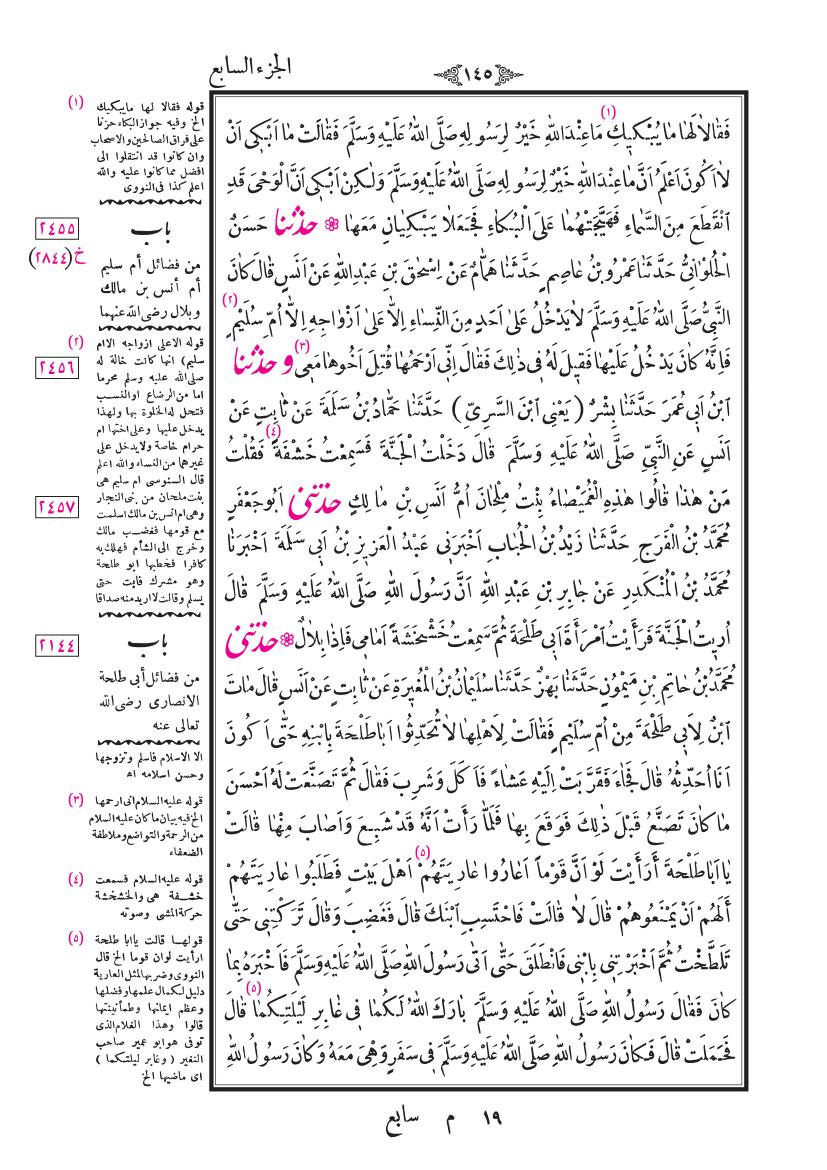 ١٤٥
الجزء السابع
فَقَالَا لَهَا مَا يُبْكِيكِ (١) مَا عِنْدَ اللّٰهِ خَيْرٌ لِرَسُولِهِ صَلَّى اللّٰهُ عَلَيْهِ وَسَلَّمَ فَقَالَتْ مَا اَبْكِى اَنْ
لَا اَكُونَ اَعْلَمُ اَنَّ مَا عِنْدَ اللّٰهِ خَيْرٌ لِرَسُولِهِ صَلَّى اللّٰهُ عَلَيْهِ وَسَلَّمَ وَلٰكِنْ اَبْكِى اَنَّ الْوَحْىَ قَدِ
انْقَطَعَ مِنَ السَّمَاءِ فَهَيَّجَتْهُمَا عَلَى الْبُكَاءِ فَجَعَلَا يَبْكِيَانِ مَعَهَا ❀ حَدَّثَنَا حَسَنٌ
الْحُلْوَانِىُّ حَدَّثَنَا عَمْرُو بْنُ عَاصِمٍ حَدَّثَنَا هَمَّامٌ عَنْ اِسْحٰقَ بْنِ عَبْدِ اللّٰهِ عَنْ اَنَسٍ قَالَ كَانَ
النَّبِىُّ صَلَّى اللّٰهُ عَلَيْهِ وَسَلَّمَ لَا يَدْخُلُ عَلٰى اَحَدٍ مِنَ النِّسَاءِ اِلَّا عَلٰى اَزْوَاجِهِ اِلَّا اُمِّ سُلَيْمٍ (٢)
فَاِنَّهُ كَانَ يَدْخُلُ عَلَيْهَا فَقِيلَ لَهُ فِى ذٰلِكَ فَقَالَ اِنِّى اَرْحَمُهَا قُتِلَ اَخُوهَا مَعِى (٣) وحَدَّثَنَا
ابْنُ اَبِى عُمَرَ حَدَّثَنَا بِشْرٌ ( يَعْنِى ابْنَ السَّرِىِّ ) حَدَّثَنَا حَمَّادُ بْنُ سَلَمَةَ عَنْ ثَابِتٍ عَنْ
اَنَسٍ عَنِ النَّبِىِّ صَلَّى اللّٰهُ عَلَيْهِ وَسَلَّمَ قَالَ دَخَلْتُ الْجَنَّةَ فَسَمِعْتُ خَشْفَةً (٤) فَقُلْتُ
مَنْ هٰذَا قَالُوا هٰذِهِ الْغُمَيْصَاءُ بِنْتُ مِلْحَانَ اُمُّ اَنَسِ بْنِ مَالِكٍ حَدَّثَنِى اَبُو جَعْفَرٍ
مُحَمَّدُ بْنُ الْفَرَجِ حَدَّثَنَا زَيْدُ بْنُ الْحُبَابِ اَخْبَرَنِى عَبْدُ الْعَزِيزِ بْنُ اَبِى سَلَمَةَ اَخْبَرَنَا
مُحَمَّدُ بْنُ الْمُنْكَدِرِ عَنْ جَابِرِ بْنِ عَبْدِ اللّٰهِ اَنَّ رَسُولَ اللّٰهِ صَلَّى اللّٰهُ عَلَيْهِ وَسَلَّمَ قَالَ
اُرِيتُ الْجَنَّةَ فَرَأَيْتُ امْرَأَةَ اَبِى طَلْحَةَ ثُمَّ سَمِعْتُ خَشْخَشَةً اَمَامِى فَاِذَا بِلَالٌ ❀ حَدَّثَنِى
مُحَمَّدُ بْنُ حَاتِمِ بْنِ مَيْمُونٍ حَدَّثَنَا بَهْزٌ حَدَّثَنَا سُلَيْمَانُ بْنُ الْمُغِيرَةِ عَنْ ثَابِتٍ عَنْ اَنَسٍ قَالَ مَاتَ
ابْنٌ لِاَبِى طَلْحَةَ مِنْ اُمِّ سُلَيْمٍ فَقَالَتْ لِاَهْلِهَا لَا تُحَدِّثُوا اَبَا طَلْحَةَ بِابْنِهِ حَتّٰى اَكُونَ
اَنَا اُحَدِّثُهُ قَالَ فَجَاءَ فَقَرَّبَتْ اِلَيْهِ عَشَاءً فَاَكَلَ وَشَرِبَ فَقَالَ ثُمَّ تَصَنَّعَتْ لَهُ اَحْسَنَ
مَا كَانَ تَصَنَّعُ قَبْلَ ذٰلِكَ فَوَقَعَ بِهَا فَلَمَّا رَأَتْ اَنَّهُ قَدْ شَبِعَ وَاَصَابَ مِنْهَا قَالَتْ
يَا اَبَا طَلْحَةَ أَرَأَيْتَ لَوْ اَنَّ قَوْماً اَعَارُوا عَارِيَتَهُمْ (٥) اَهْلَ بَيْتٍ فَطَلَبُوا عَارِيَتَهُمْ
أَلَهُمْ اَنْ يَمْنَعُوهُمْ قَالَ لَا قَالَتْ فَاحْتَسِبِ ابْنَكَ قَالَ فَغَضِبَ وَقَالَ تَرَكْتِنِى حَتّٰى
تَلَطَّخْتُ ثُمَّ اَخْبَرْتِنِى بِابْنِى فَانْطَلَقَ حَتّٰى اَتٰى رَسُولَ اللّٰهِ صَلَّى اللّٰهُ عَلَيْهِ وَسَلَّمَ فَاَخْبَرَهُ بِمَا
كَانَ فَقَالَ رَسُولُ اللّٰهِ صَلَّى اللّٰهُ عَلَيْهِ وَسَلَّمَ بَارَكَ اللّٰهُ لَكُمَا فِى غَابِرِ لَيْلَتِكُمَا (٥) قَالَ
فَحَمَلَتْ قَالَ فَكَانَ رَسُولُ اللّٰهِ صَلَّى اللّٰهُ عَلَيْهِ وَسَلَّمَ فِى سَفَرٍ وَهِىَ مَعَهُ وَكَانَ رَسُولُ اللّٰهِ
(١) قوله فقالا لها مايبكيك
الخ وفيه جواز البكاء حزنا
على فراق الصالحين والاصحاب
وان كانوا قد انتقلوا الى
افضل مما كانوا عليه والله
اعلم كذا فى النووى
باب
٢٤٥٥
خ(٢٨٤٤)
من فضائل أم سليم
أم أنس بن مالك
وبلال رضى الله عنهما
(٢) قوله الاعلى ازواجه الاام
سليم) انها كانت خالة له
٢٤٥٦
صلى الله عليه وسلم محرما
اما من الرضاع اوالنسب
فتحل له الخلوة بها ولهذا
يدخل عليها وعلى اختها ام
حرام خاصة ولايدخل على
غيرهما من النساء والله اعلم
قال السنوسى ام سليم هى
بنت ملحان من بنى النجار
٢٤٥٧
وهى ام انس بن مالك اسلمت
مع قومها فغضب مالك
وخرج الى الشأم فهلك به
كافرا فخطبها ابو طلحة
وهو مشرك فابت حتى
يسلم وقالت لا اريد منه صداقا
باب
٢١٤٤
من فضائل أبى طلحة
الانصارى رضى الله
تعالى عنه
الا الاسلام فاسلم وتزوجها
وحسن اسلامه اه
(٣) قوله عليه السلام انى ارحمها
الخ فيه بيان ما كان عليه السلام
من الرحمة والتواضع وملاطفة
الضعفاء
(٤) قوله عليه السلام فسمعت
خشفة هى والخشخشة
حركة المشى وصوته
(٥) قولها قالت ياابا طلحة
ارأيت لوان قوما الخ قال
النووى وضربها لمثل العارية
دليل لكمال علمها وفضلها
وعظم ايمانها وطمأنينتها
قالوا وهذا الغلام الذى
توفى هو ابو عمير صاحب
النغير ( وغابر ليلتكما )
اى ماضيها الخ
١٩ م سابع